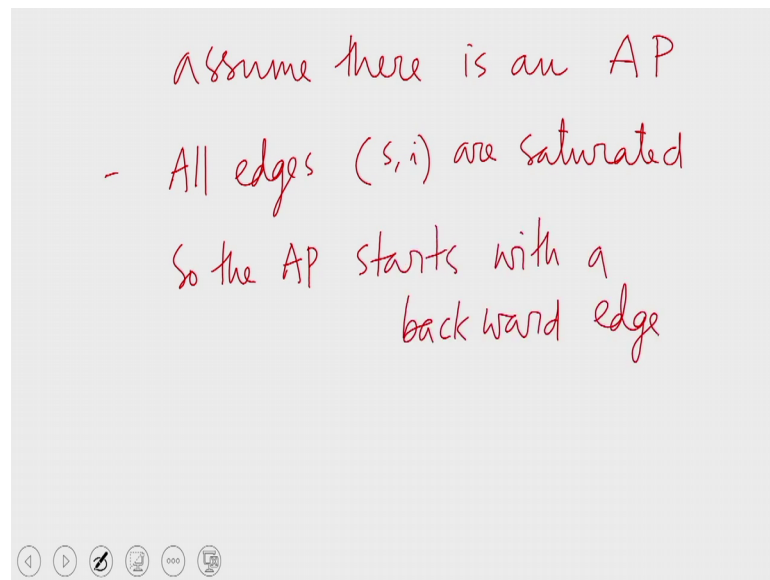 assume there is an AP
- All edges (s,i) are saturated
So the AP starts with a
backward edge